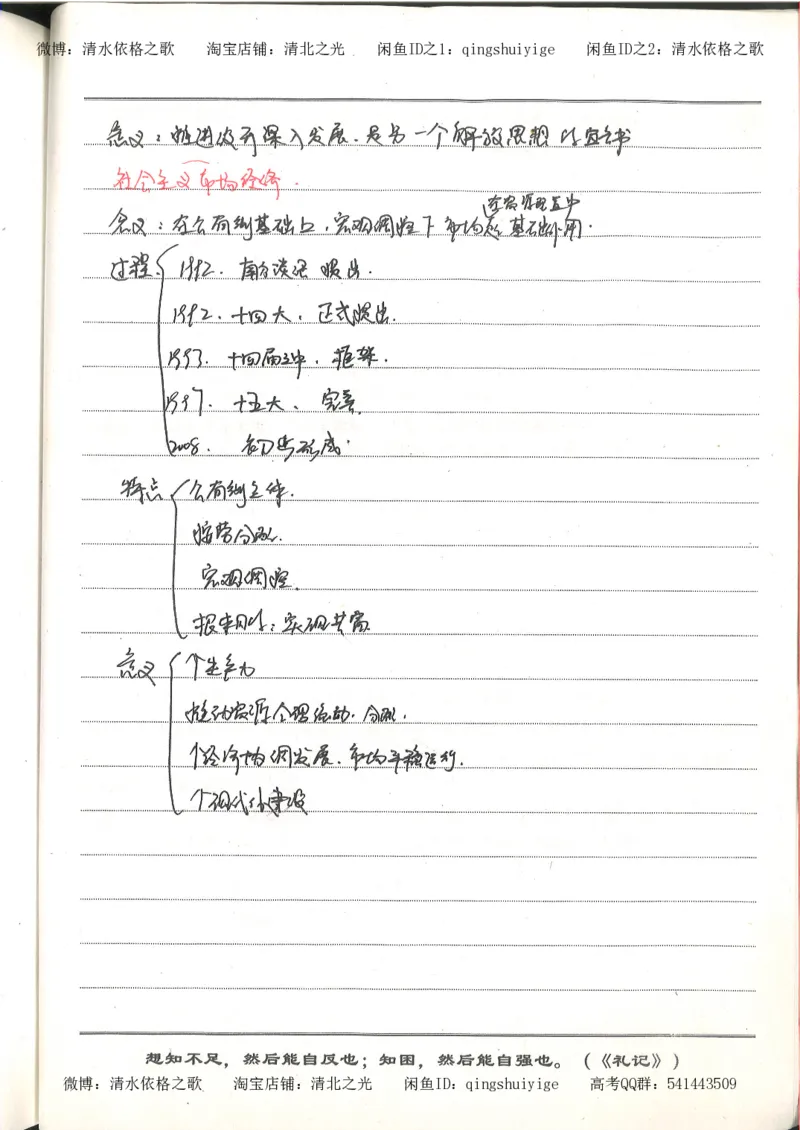 微博：清水依格之歌 淘宝店铺：清北之光 闲鱼ID之1：qingshuiyige 闲鱼ID之2：清水依格之歌
意义：推进改开深入发展．是另一个解放思想的宣言书
社会主义市场经济．
在资源配置中
含义：在公有制基础上，宏观调控下市场起基础作用．
过程 1992．南方谈话 提出．
1992．十四大．正式提出．
1993．十四届三中．框架．
1997．十五大．完善．
2008．初步形成．
特点 公有制主体．
按劳分配．
宏观调控．
根本目的：实现共富
意义 个生产力
推动资源合理流动．分配．
个经济协调发展．市场平稳运行．
个现代化建设
想知不足，然后能自反也；知困，然后能自强也。（《礼记》）
微博：清水依格之歌 淘宝店铺：清北之光 闲鱼ID：qingshuiyige 高考QQ群：541443509